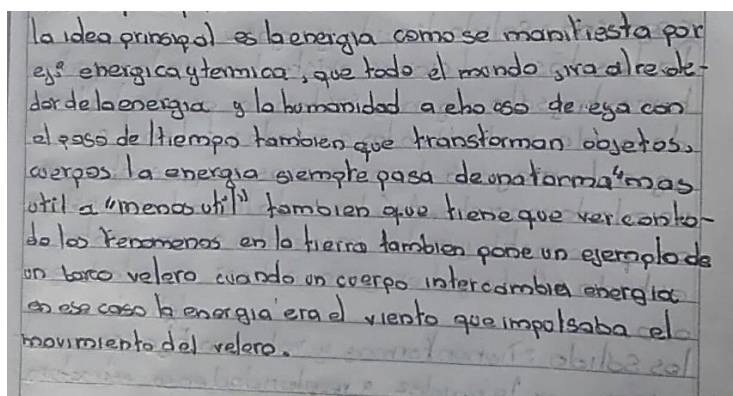 la idea prinsipal es la energia como se manifiesta por
ej° energica y termica, que todo el mundo jira alrede-
dor de la energia y la humanidad a eho uso de eya con
el paso del tiempo tambien que transforman objetos,
cuerpos la energia siempre pasa de una forma "mas
util a "menos util" tambien que tiene que ver con to-
do los fenomenos en la tierra tambien pone un ejemplo de
un barco velero cuando un cuerpo intercambia energia
en ese caso la energia era el viento que impulsaba el
movimiento del velero.